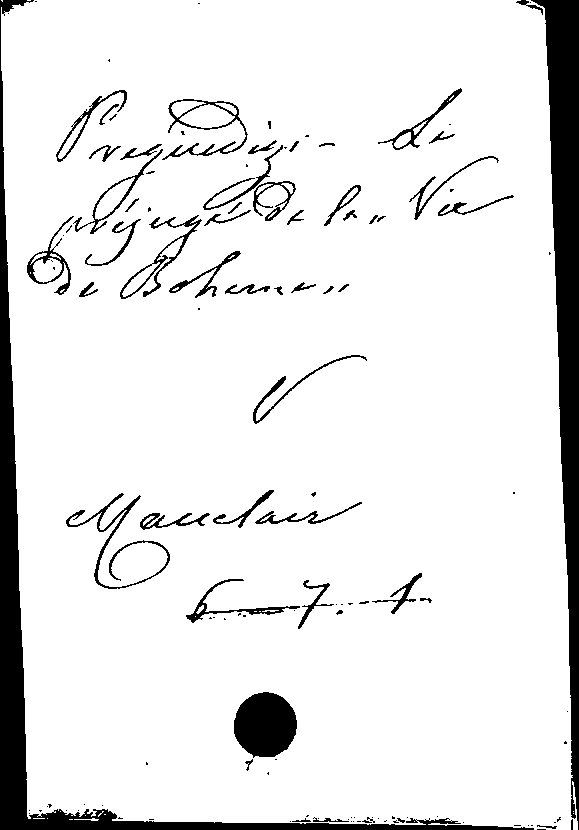 Pregiudizi - Le
préjugé de la „ Vie
de Boheme „
V
Mauclair
6 - 7. 1